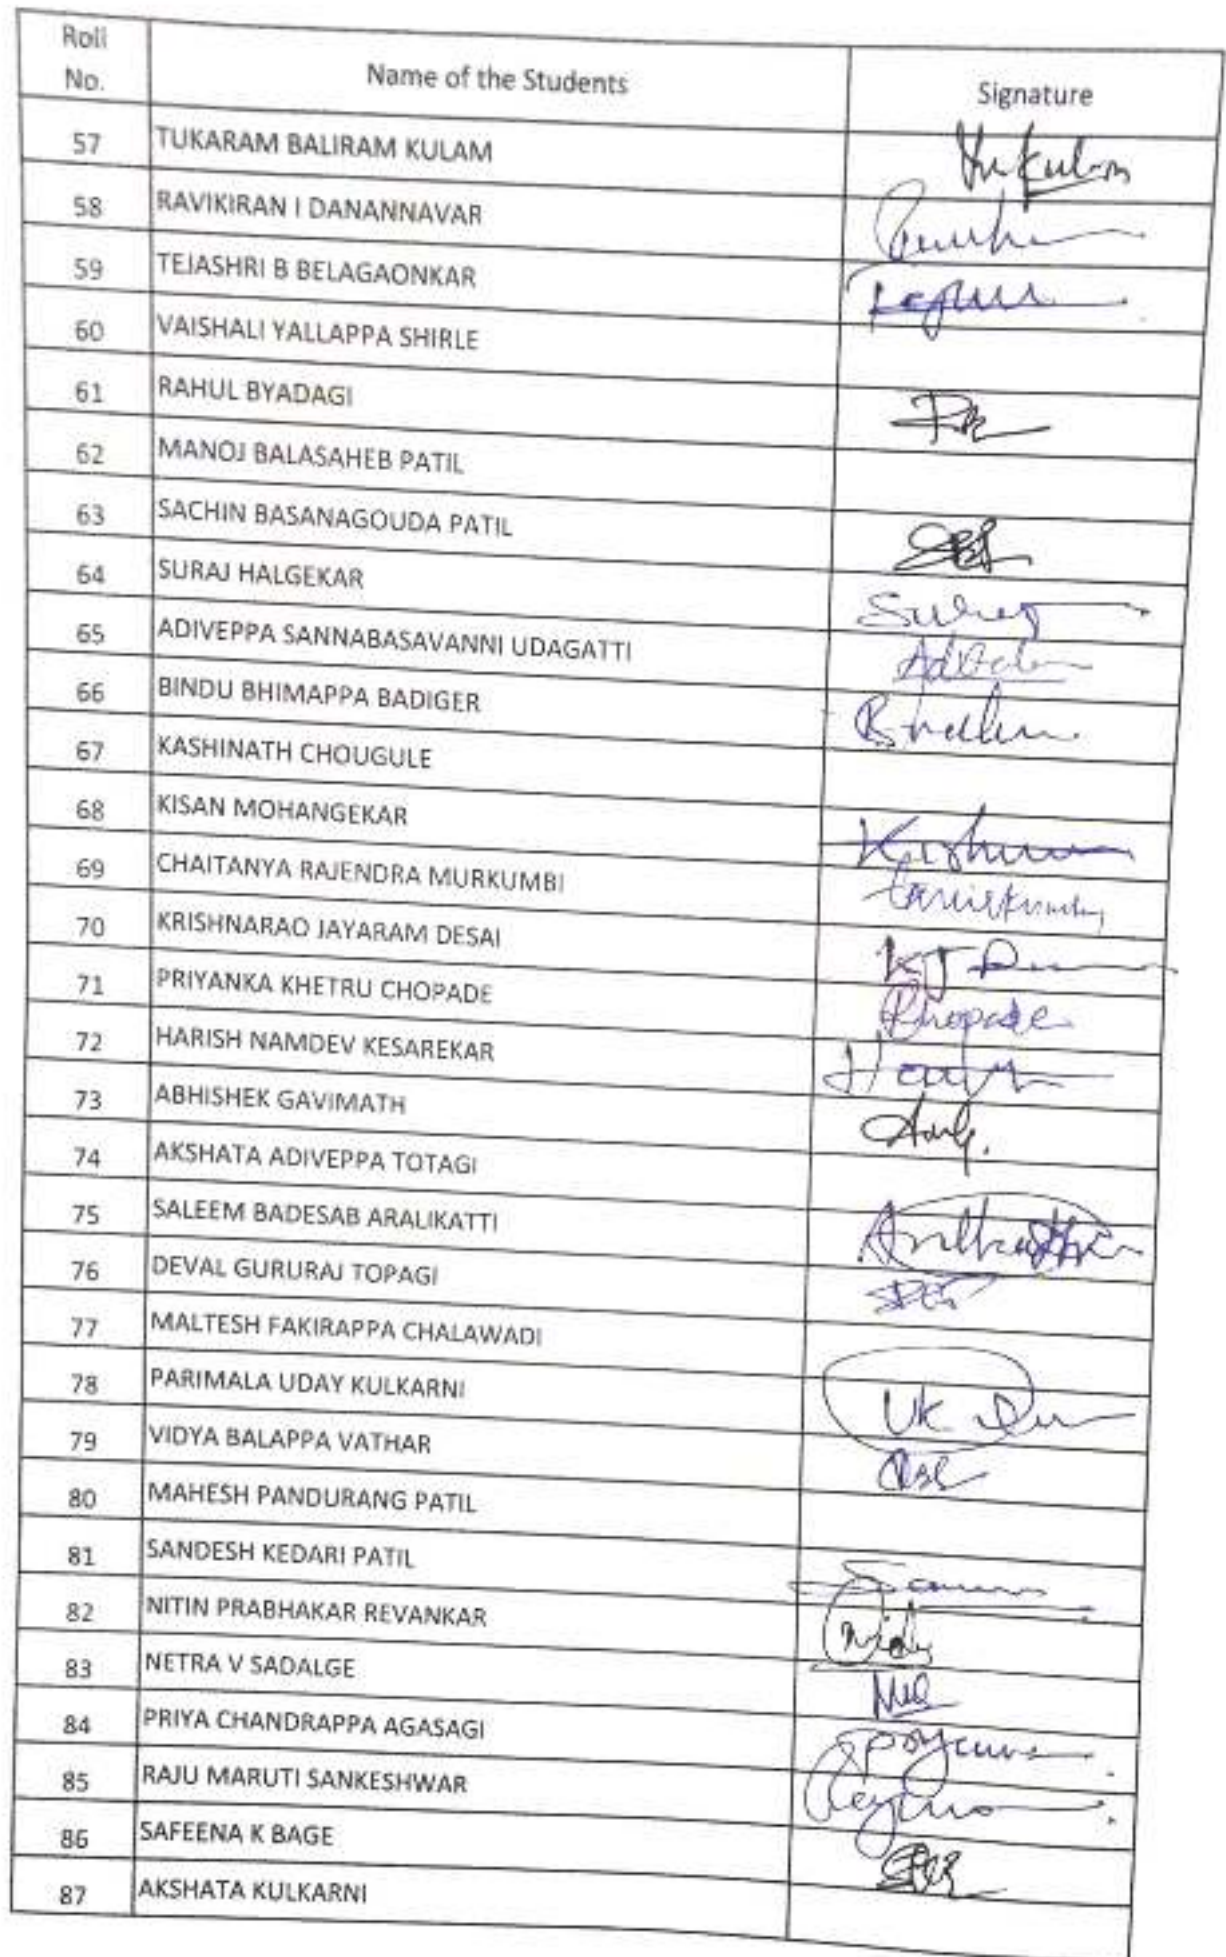 Roll
No.
Name of the Students
Signature
57 TUKARAM BALIRAM KULAM Tukulam
58 RAVIKIRAN I DANANNAVAR
59 TEJASHRI B BELAGAONKAR
60 VAISHALI YALLAPPA SHIRLE
61 RAHUL BYADAGI
62 MANOJ BALASAHEB PATIL
63 SACHIN BASANAGOUDA PATIL
64 SURAJ HALGEKAR Suraj
65 ADIVEPPA SANNABASAVANNI UDAGATTI
66 BINDU BHIMAPPA BADIGER
67 KASHINATH CHOUGULE
68 KISAN MOHANGEKAR
69 CHAITANYA RAJENDRA MURKUMBI
70 KRISHNARAO JAYARAM DESAI
71 PRIYANKA KHETRU CHOPADE
72 HARISH NAMDEV KESAREKAR
73 ABHISHEK GAVIMATH
74 AKSHATA ADIVEPPA TOTAGI
75 SALEEM BADESAB ARALIKATTI
76 DEVAL GURURAJ TOPAGI
77 MALTESH FAKIRAPPA CHALAWADI
78 PARIMALA UDAY KULKARNI
79 VIDYA BALAPPA VATHAR
80 MAHESH PANDURANG PATIL
81 SANDESH KEDARI PATIL
82 NITIN PRABHAKAR REVANKAR
83 NETRA V SADALGE
84 PRIYA CHANDRAPPA AGASAGI
85 RAJU MARUTI SANKESHWAR
86 SAFEENA K BAGE
87 AKSHATA KULKARNI